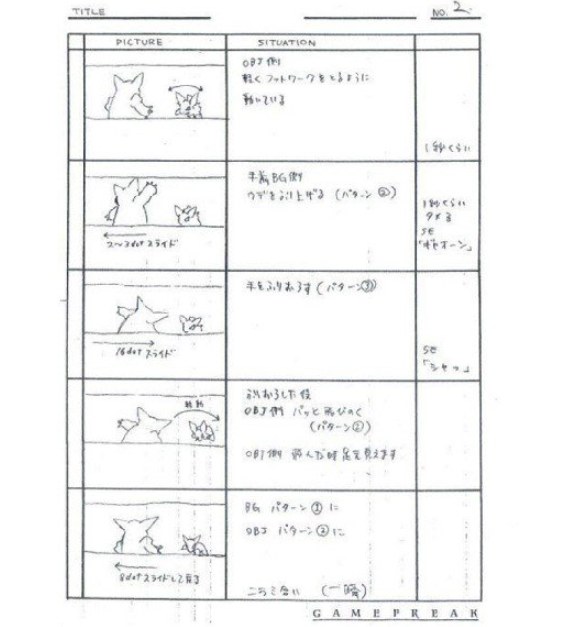 TITLE
NO. 2.
PICTURE
SITUATION
OBJ側
軽くフットワークをとるように
動いている
1秒くらい
手前BG側
ウデをふり上げる (パターン②)
1秒くらい
タメる
SE
「ギャオーン」
2〜3dotスライド
手をふりおろす (パターン③)
16dotスライド
SE
「シャッ」
ふりおろした後
OBJ側 パッと飛びのく
(パターン②)
移動
OBJ側 飛んだ時足を見えます
BG パターン①に
OBJ パターン②に
8dotスライドして戻る
にらみ合い (一瞬)
GAME FREAK